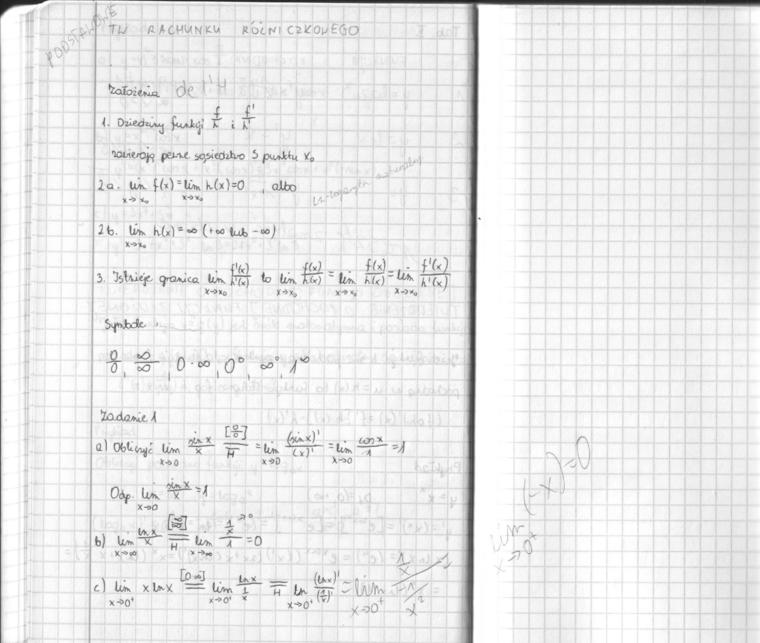 PODSTAWOWE
TW RACHUNKU RÓŻNICZKOWEGO
Założenia de l'H
1. Dziedziny funkcji f/h i f'/h'
zawierają pewne sąsiedztwo S punktu x₀
2a. lim x→x₀ f(x) = lim x→x₀ h(x) = 0, albo
2b. lim x→x₀ h(x) = ∞ (+∞ lub -∞)
3. Istnieje granica lim x→x₀ f'(x)/h'(x) to lim x→x₀ f(x)/h(x) = lim x→x₀ f(x)/h(x) = lim x→x₀ f'(x)/h'(x)
Symbole
0/0, ∞/∞, 0·∞, 0⁰, ∞⁰, 1^∞
Zadanie 1
a) Obliczyć lim x→0 sinx/x [0/0] =H= lim x→0 (sinx)'/(x)' = lim x→0 cosx/1 = 1
Odp. lim x→0 sinx/x = 1
b) lim x→∞ lnx/x [∞/∞] =H= lim x→∞ 1/x →0 /1 = 0
c) lim x→0⁺ x lnx [0·∞] = lim x→0⁺ lnx/(1/x) =H= ln x→0⁺ (lnx)'/(1/x)' = lim x→0⁺ (1/x)/(-1/x²) =
lim x→0⁺ (-x) = 0